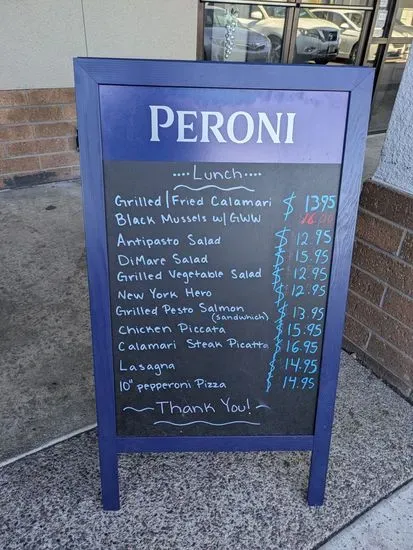 PERONI
Lunch
Grilled/Fried Calamari $ 1395
Black Mussels w/ GWW 16.95
Antipasto Salad $ 12.95
DiMare Salad $ 15.95
Grilled Vegetable Salad $ 12.95
New York Hero $ 12.95
Grilled Pesto Salmon $ 13.95
(sandwhich)
Chicken Piccata $ 15.95
Calamari Steak Picatta $ 16.95
Lasagna $ 14.95
10" pepperoni Pizza $ 14.95
~ Thank You! ~